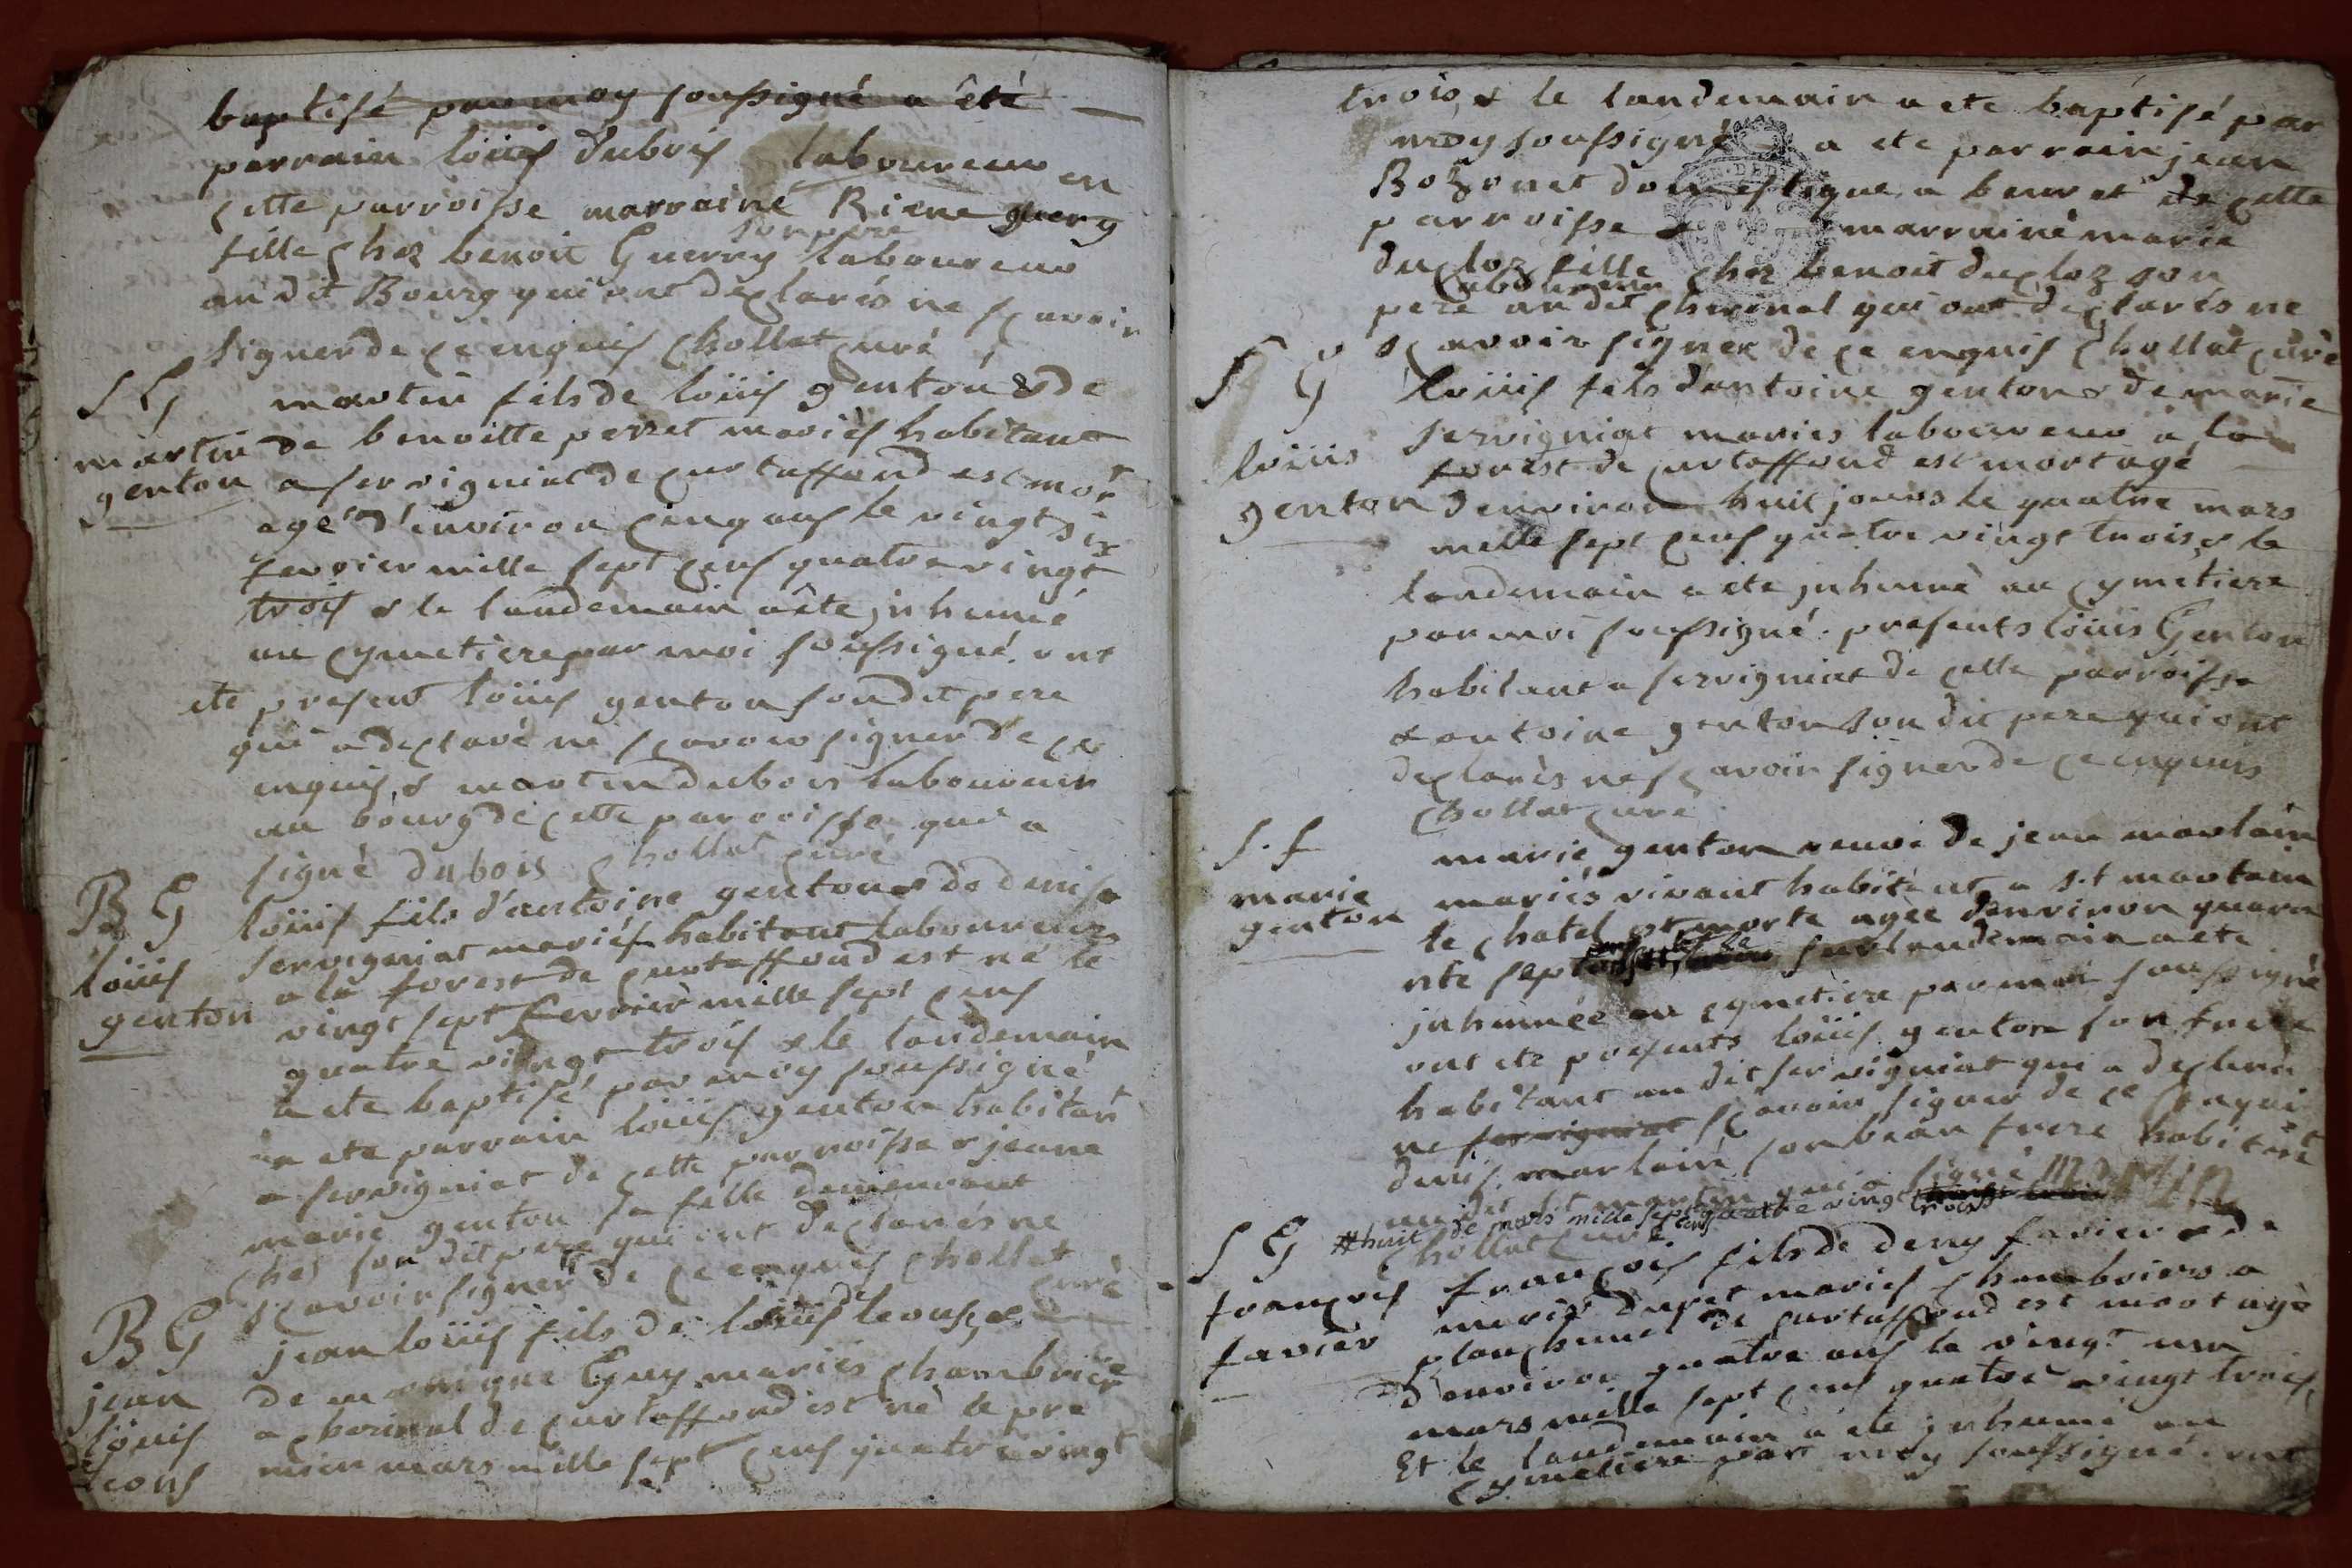 baptisé par moy soussigné a êté
parrain loüis dubois laboureur en
cette parroisse marraine Riene guerg
son pere
fille chez benoit Guerry laboureur
au dit Bourg qui ont declarés ne scavoir
signer de ce enquis Chollet curé
S G martin fils de loüis genton & de
martin de benoitte perret mariés habitant
genton a servigniat de curtaffond est mort
agé d'environ cinq ans le vingt six
fevrier mille sept cens quatre vingt
trois & le landemain a êté inhumé
au cymetiere par moi soussigné ont
eté present loüis genton son dit pere
qui a declaré ne scavoir signer de ce
enquis & martin dubois laboureur
au bourg de cette parroisse qui a
signé dubois Chollet curé
B G loüis fils d'antoine genton & de denise
loüis servigniat mariés habitant laboureurs
genton a la forest de curtaffond est né le
vingt sept fevrier mille sept cens
quatre vingt trois & le landemain
a ete baptisé par moy soussigné
a ete parrain loüis genton habitant
a servigniat de cette parroisse & jeane
marie genton sa fille demeurant
chez son dit pere qui ont declarés ne
scavoir signer de ce enquis Chollet
curé
B G jean loüis fils de loüis leons &
jean de monique Guy mariés chambrier
loüis a cherinal de curtaffond est né le pre
leons mier mars mille sept cens quatre vingt
trois & le landemain a ete baptisé par
moy soussigné a ete parrain jean
Bozonet domestique a beuret de cette
parroisse & marraine marie
ducloz fille chez benoit ducloz son
laboureur
pere au dit cherinal qui ont declarés ne
scavoir signer de ce enquis Chollet curé
S G loüis fils d'antoine genton & de marie
servigniat mariés laboureur a la
loüis forest de curtaffond est mort agé
genton d'environ huit jours le quatre mars
mille sept cens quatre vingt trois & le
landemain a ete inhumé au cymetiere
par moi soussigné presents loüis Genton
habitant a servigniat de cette parroisse
& antoine genton son dit pere qui ont
declarés ne scavoir signer de ce enquis
Chollet curé
S. f marie genton veuve de jean marlain
marie mariés vivant habitant a s.t martain
genton le chatel est morte agée d'environ quara
nte sept ans le # sur landemain a ete
inhumée au cymetiere par moi soussigné
ont ete presents loüis genton son frere
habitant au dit servigniat qui a declaré
ne servigniat scavoir signer de ce enqui
denis marlain son beau frere habitant
au dit s.t martin qui a signé
#huit de mars mille sept cens quatre vingt trois
Chollet curé
S G
françois françois fils de deny favier & de
favier marie duret mariés chambriers a
planchemel de curtaffond est mort agé
d'environ quatre ans le vingt un
mars mille sept cens quatre vingt trois
Et le landemain a ete inhumé au
cymetiere par moy soussigné ont